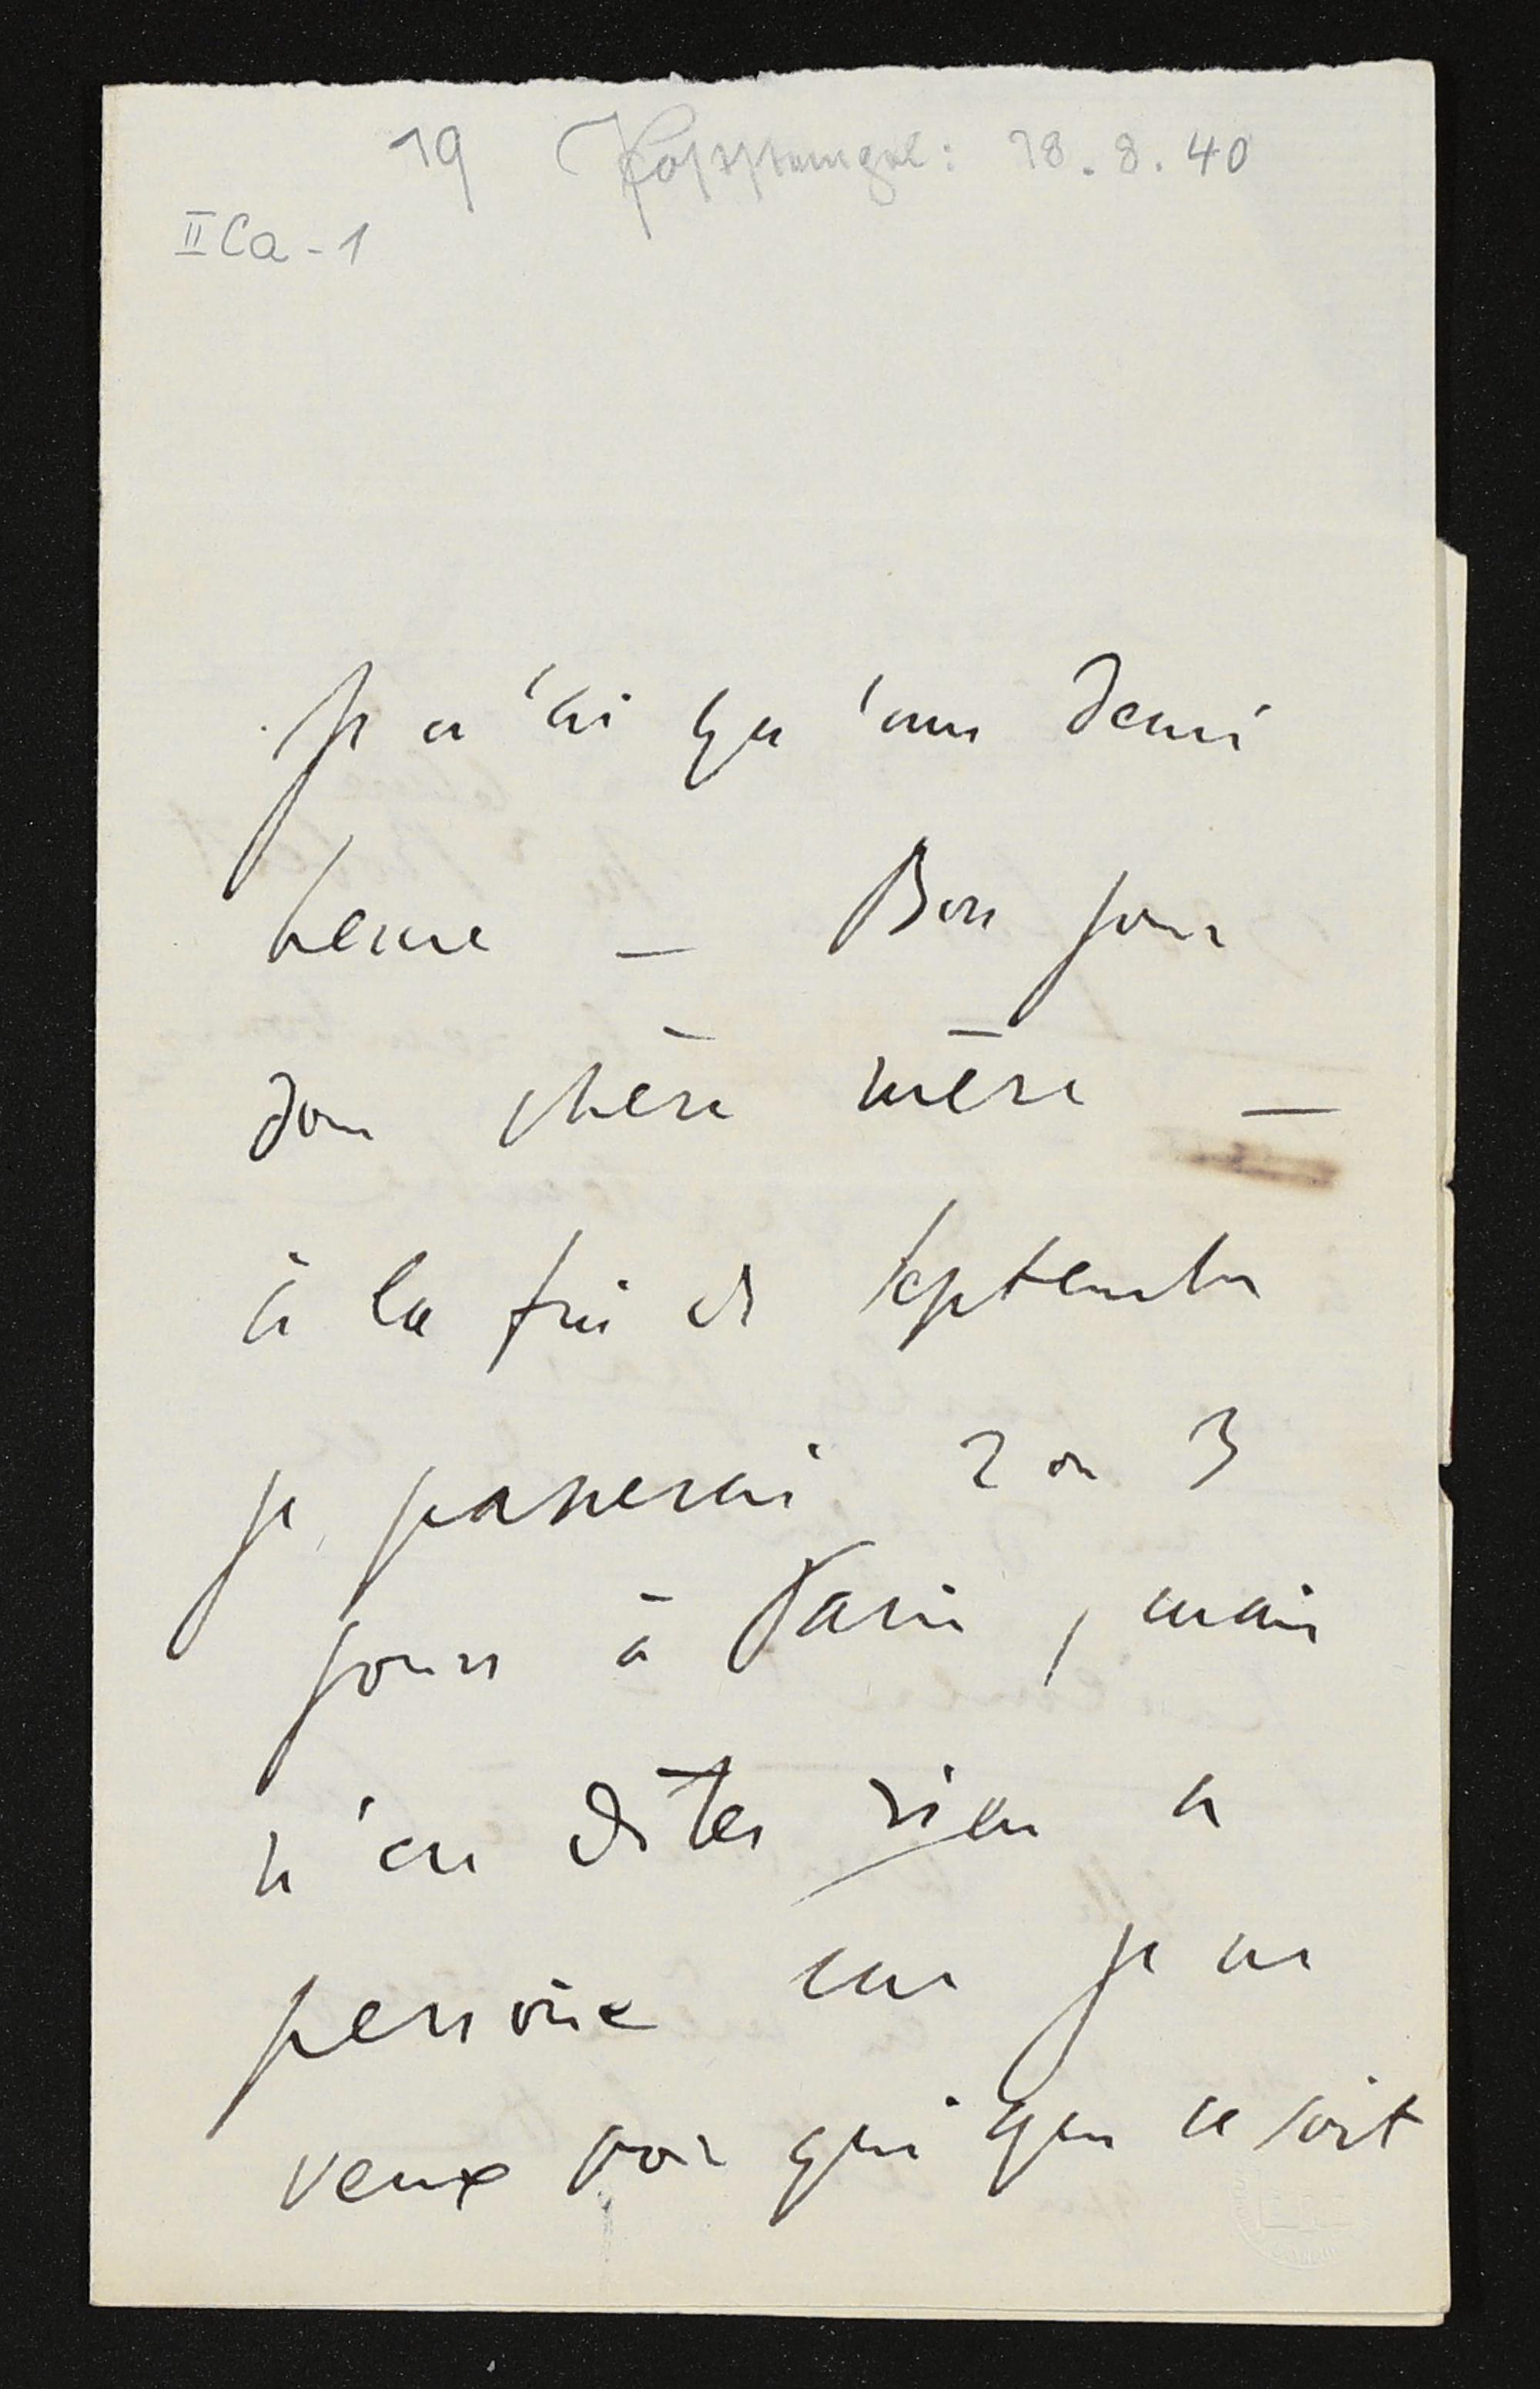 19 Poststempel: 28.8.40
II Ca - 1
Je n'ai qu'une demi
heure — Bon jour
donc chère mère —
à la fin de Septembre
je passerai 2 ou 3
jours à Paris, mais
n'en dites rien a
persone car je ne
veux voir qui que ce soit